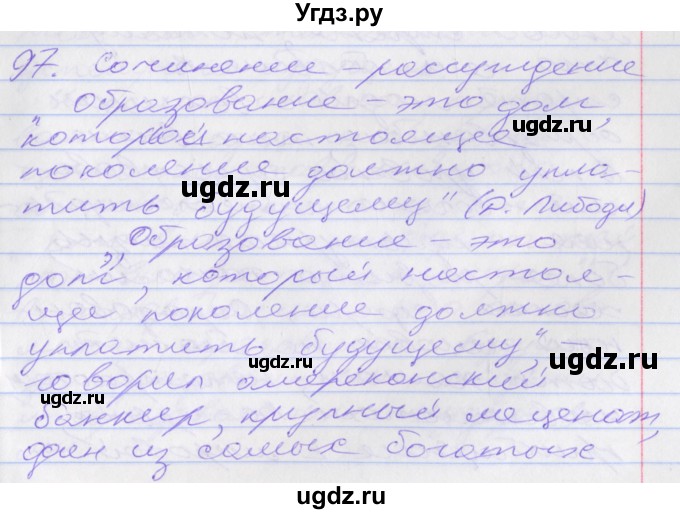 Угдз.ру
97. Сочинение – рассуждение
Образование – это долг,
"который настоящее
поколение должно упла-
тить будущему" (Д. Пибоди)
„Образование – это
долг, который настоя-
щее поколение должно
уплатить будущему", –
говорил американский
банкир, крупный меценат,
один из самых богатых
ugdz.ru
ugdz.ru
ugdz.ru
ugdz.ru
ugdz.ru
ugdz.ru
ugdz.ru